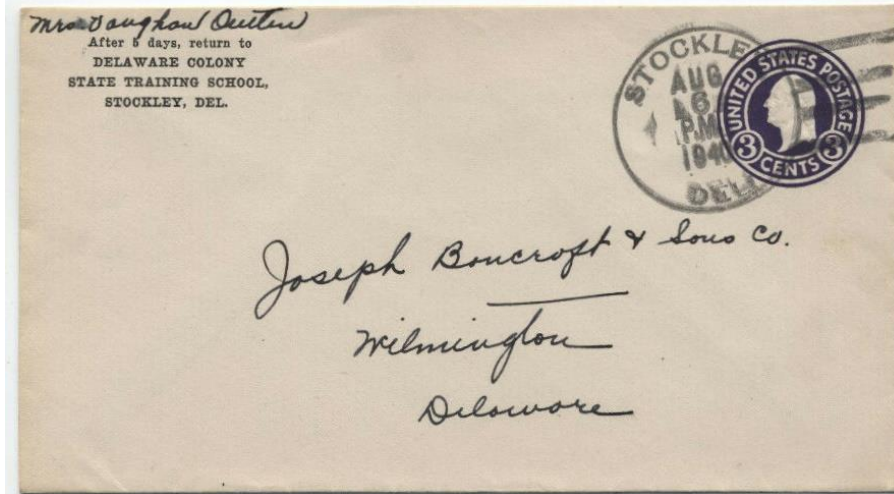 Mrs.
After 5 days, return to
DELAWARE COLONY
STATE TRAINING SCHOOL,
STOCKLEY, DEL.
STOCKLE
AUG
6
P.M.
1940
DEL.
UNITED STATES POSTAGE
3 CENTS 3
Joseph Boncroft & Sons Co.
Wilmington
Delaware